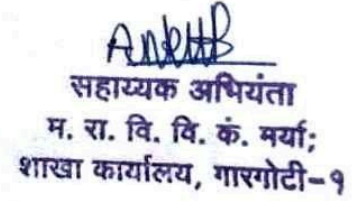 सहाय्यक अभियंता
म. रा. वि. वि. कं. मर्या;
शाखा कार्यालय, गारगोटी-१